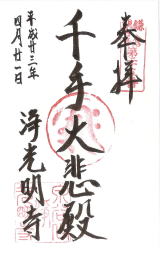 奉拝
千手大悲殿
浄光明寺
平成廿三年
四月廿一日